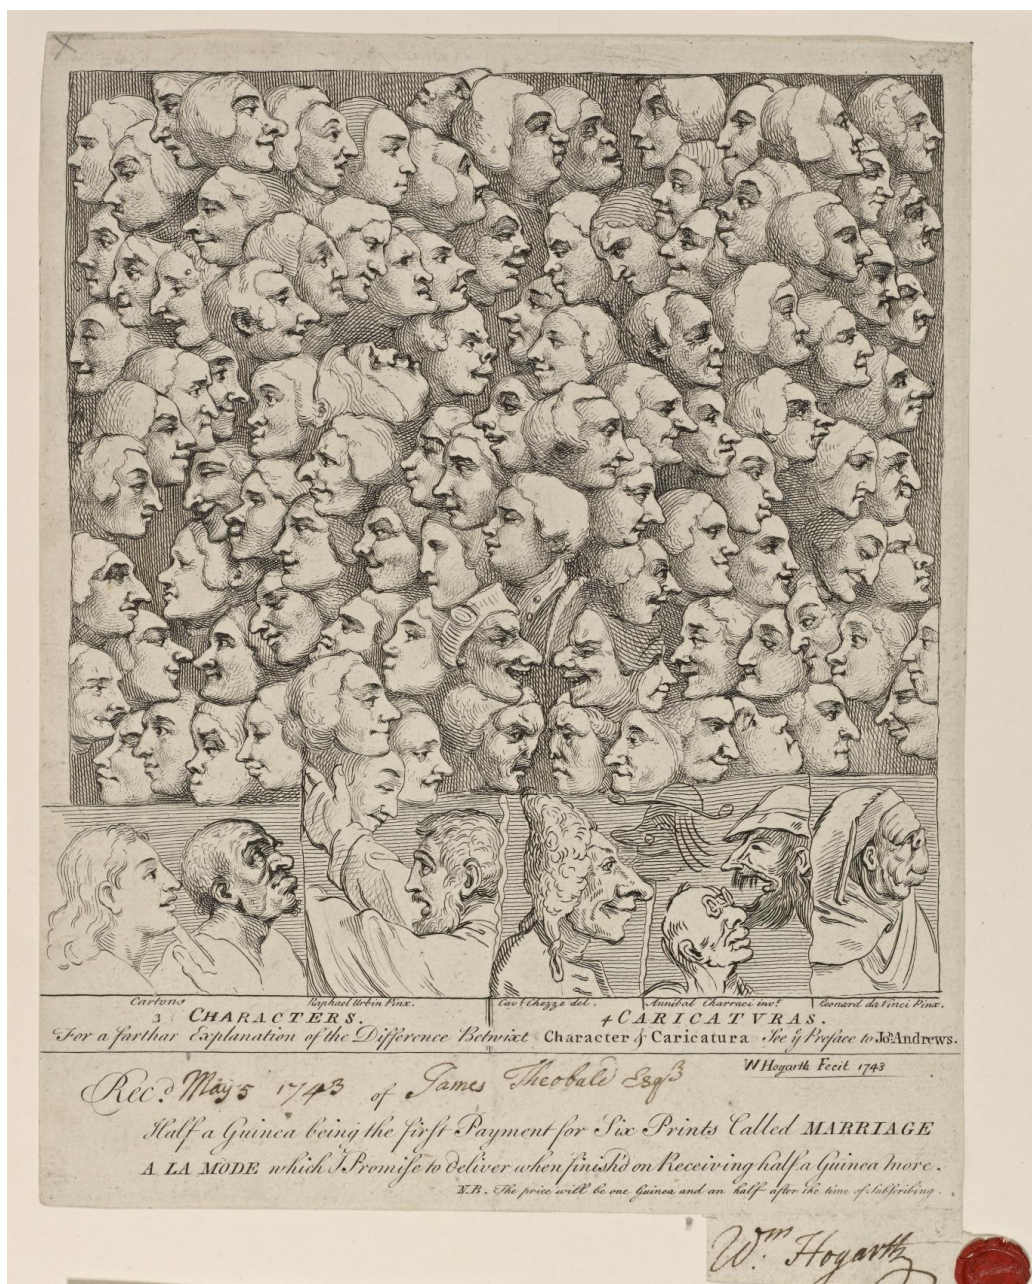 Cartons
Raphael Urbin Pinx.
Cavr. Chezze del.
Annibal Charraci invt.
Leonard da Vinci Pinx.
3 CHARACTERS.
4 CARICATVRAS.
For a farthar Explanation of the Difference Betwixt Character & Caricatura See ye Preface to Jos. Andrews.
W Hogarth Fecit 1743
Recd. May 5 1743 of James Theobald Esqr
Half a Guinea being the first Payment for Six Prints Called MARRIAGE
A LA MODE which I Promise to deliver when finish'd on Receiving half a Guinea more.
N.B. The price will be one Guinea and an half after the time of Subscribing.
Wm. Hogarth